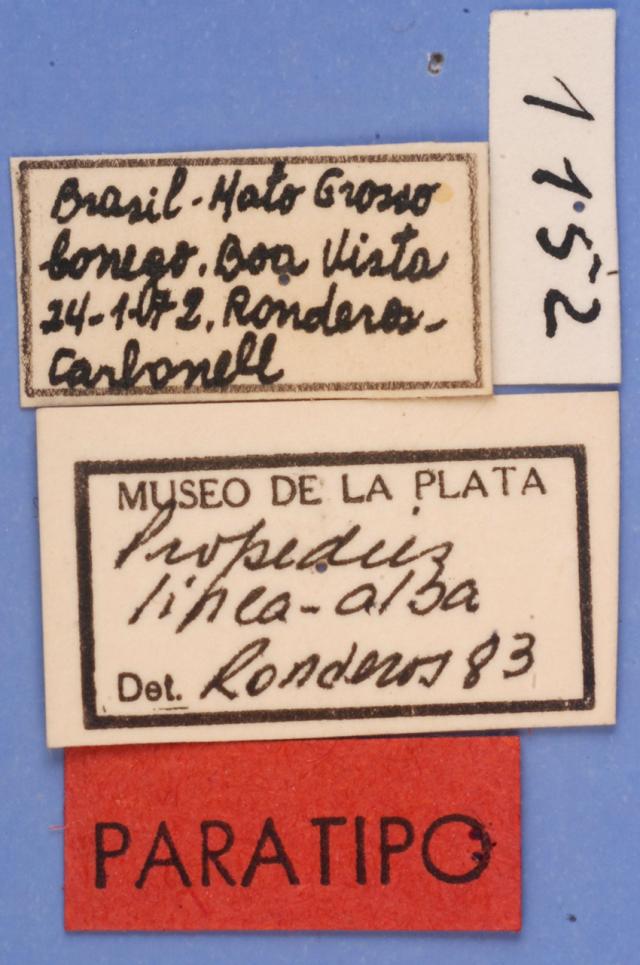 1152
Brasil-Mato Grosso
Conego. Boa Vista
24-1-072. Ronderos-
Carbonell
MUSEO DE LA PLATA
Propedies
linea-alba
Det. Ronderos 83
PARATIPO